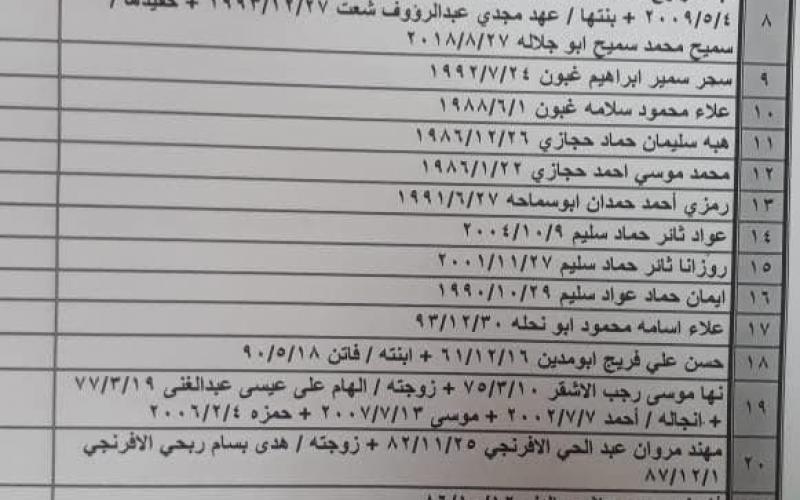 ٨
٢٠٠٩/٥/٤ + بنتها / عهد مجدي عبدالرؤوف شعت ١٩٩٣/١٢/٢٧ + حفيدها /
سميح محمد سميح ابو جلاله ٢٠١٨/٨/٢٧
٩ سجر سمير ابراهيم غبون ١٩٩٢/٧/٢٤
١٠ علاء محمود سلامه غبون ١٩٨٨/٦/١
١١ هبه سليمان حماد حجازي ١٩٨٦/١٢/٢٦
١٢ محمد موسي احمد حجازي ١٩٨٦/١/٢٢
١٣ رمزي أحمد حمدان ابوسماحه ١٩٩١/٦/٢٧
١٤ عواد ثائر حماد سليم ٢٠٠٤/١٠/٩
١٥ روزانا ثائر حماد سليم ٢٠٠١/١١/٢٧
١٦ ايمان حماد عواد سليم ١٩٩٠/١٠/٢٩
١٧ علاء اسامه محمود ابو نحله ٩٣/١٢/٣٠
١٨ حسن علي فريج ابومدين ٦١/١٢/١٦ + ابنته / فاتن ٩٠/٥/١٨
١٩ نها موسى رجب الاشقر ٧٥/٣/١٠ + زوجته / الهام على عيسى عبدالغنى ٧٧/٣/١٩
+ انجاله / أحمد ٢٠٠٢/٧/٧ + موسى ٢٠٠٧/٧/١٣ + حمزه ٢٠٠٦/٢/٤
٢٠ مهند مروان عبد الحي الافرنجي ٨٢/١١/٢٥ + زوجته / هدى بسام ربحي الافرنجي
٨٧/١٢/١